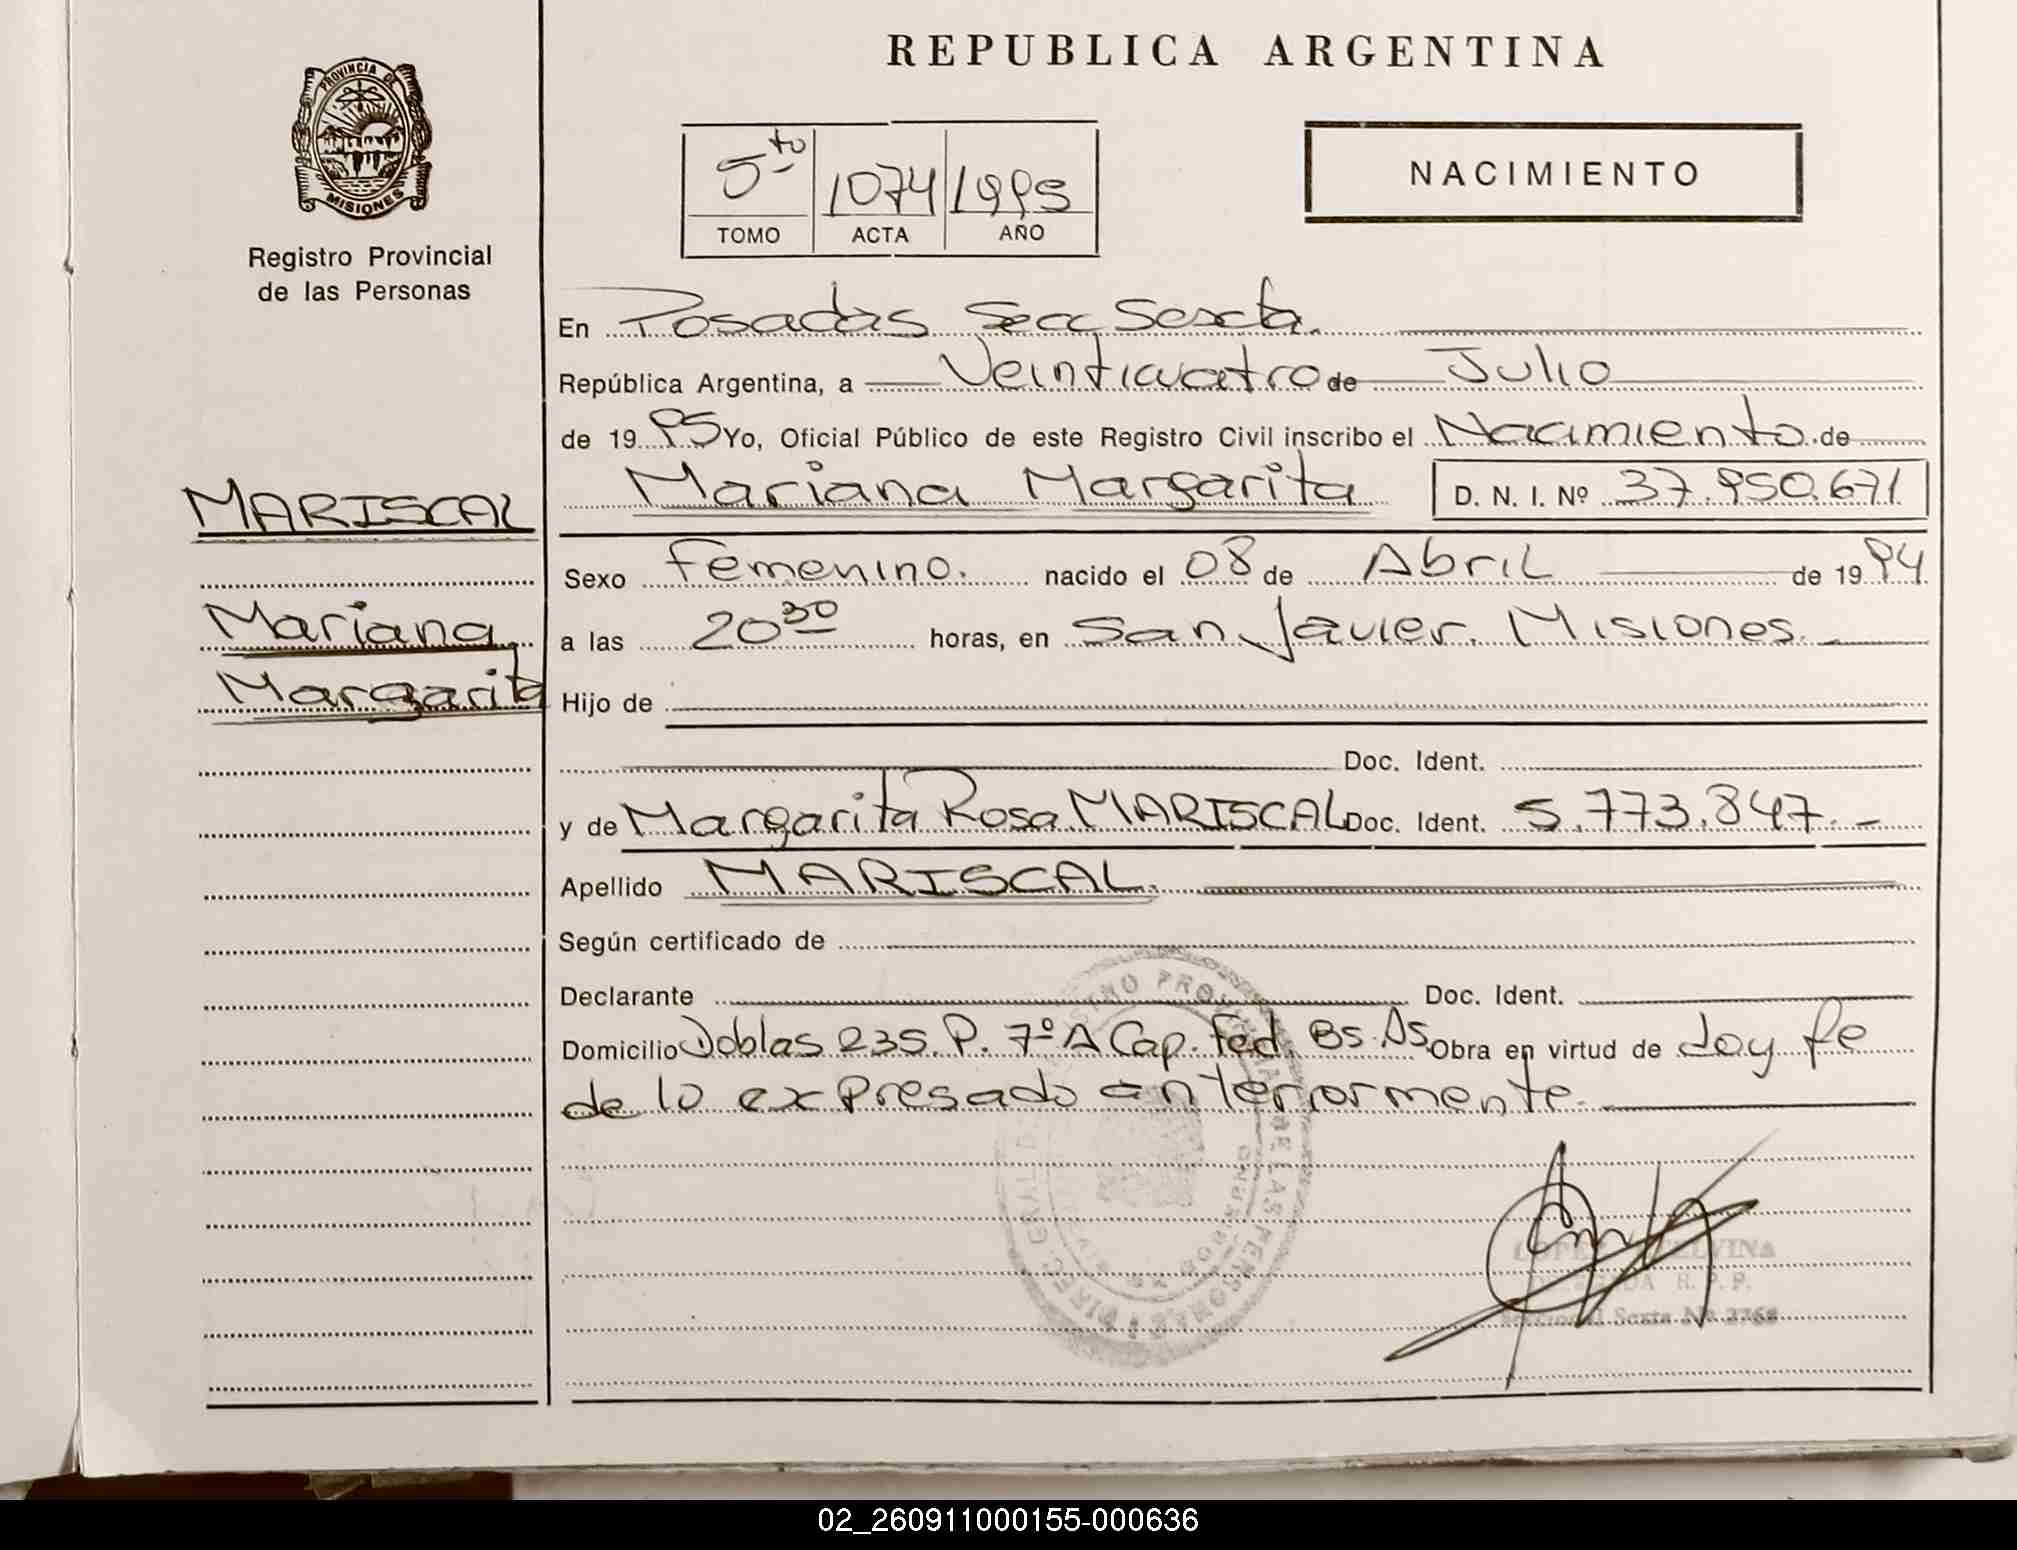 REPUBLICA ARGENTINA
PROVINCIA DE
MISIONES
Registro Provincial
de las Personas
5to 1074 1995
TOMO ACTA AÑO
NACIMIENTO
En Posadas Secc Sexta.
República Argentina, a Veinticuatro de Julio
de 1995 Yo, Oficial Público de este Registro Civil inscribo el Nacimiento de
MARISCAL
Mariana Margarita D. N. I. Nº 37.950.671
Sexo Femenino. nacido el 08 de Abril de 1994
Mariana
a las 20 30 horas, en San Javier. Misiones.
Margarita
Hijo de
Doc. Ident.
y de Margarita Rosa MARISCAL Doc. Ident. 5.773.847.-
Apellido MARISCAL.
Según certificado de
Declarante Doc. Ident.
Domicilio Doblas 235. P. 7º A Cap. Fed. Bs. As. Obra en virtud de doy fe
de lo expresado anteriormente.
R. P. P.
Seccional Sexta Nº 2768
02_260911000155-000636